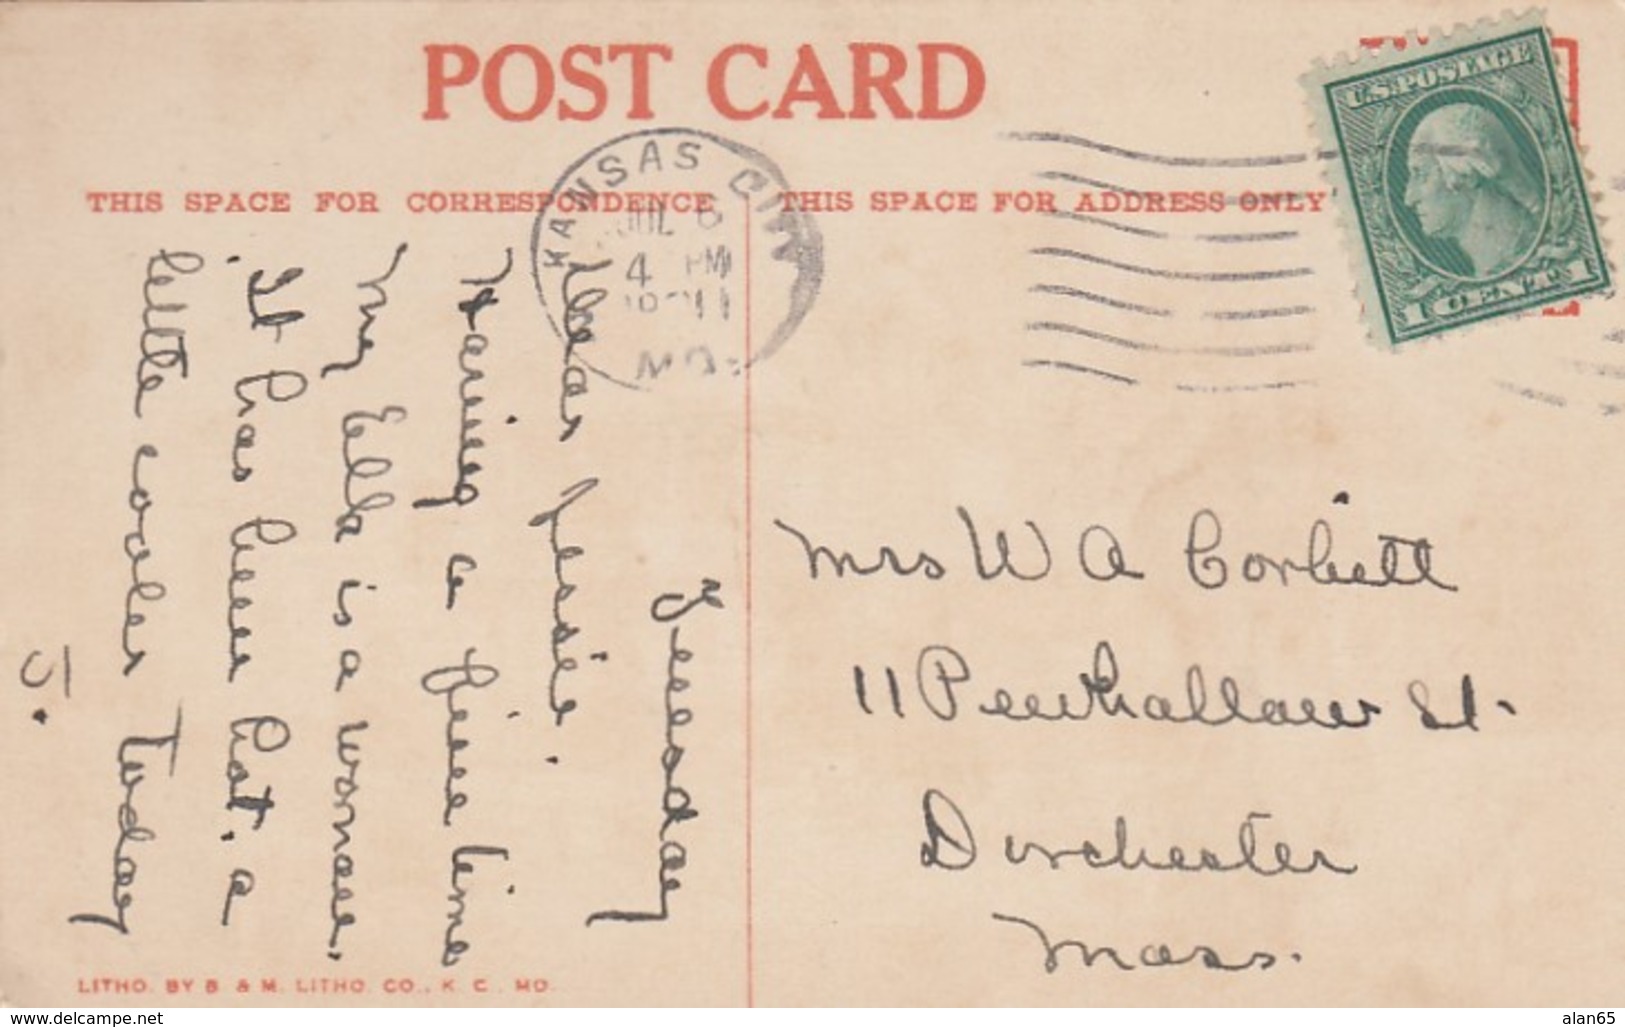 POST CARD
THIS SPACE FOR CORRESPONDENCE
THIS SPACE FOR ADDRESS ONLY
KANSAS CITY
JUL 6
4 PM
MO.
U.S. POSTAGE
1 CENT 1
Tuesday
Dear Jessie.
Having a fine time
My Ella is a woman.
It has been hot. a
little cooler today
J.
Mrs W A Corbett
11 Penhallow St.
Dorchester
Mass.
LITHO. BY B & M. LITHO. CO., K. C. MO.
www.delcampe.net
alan65